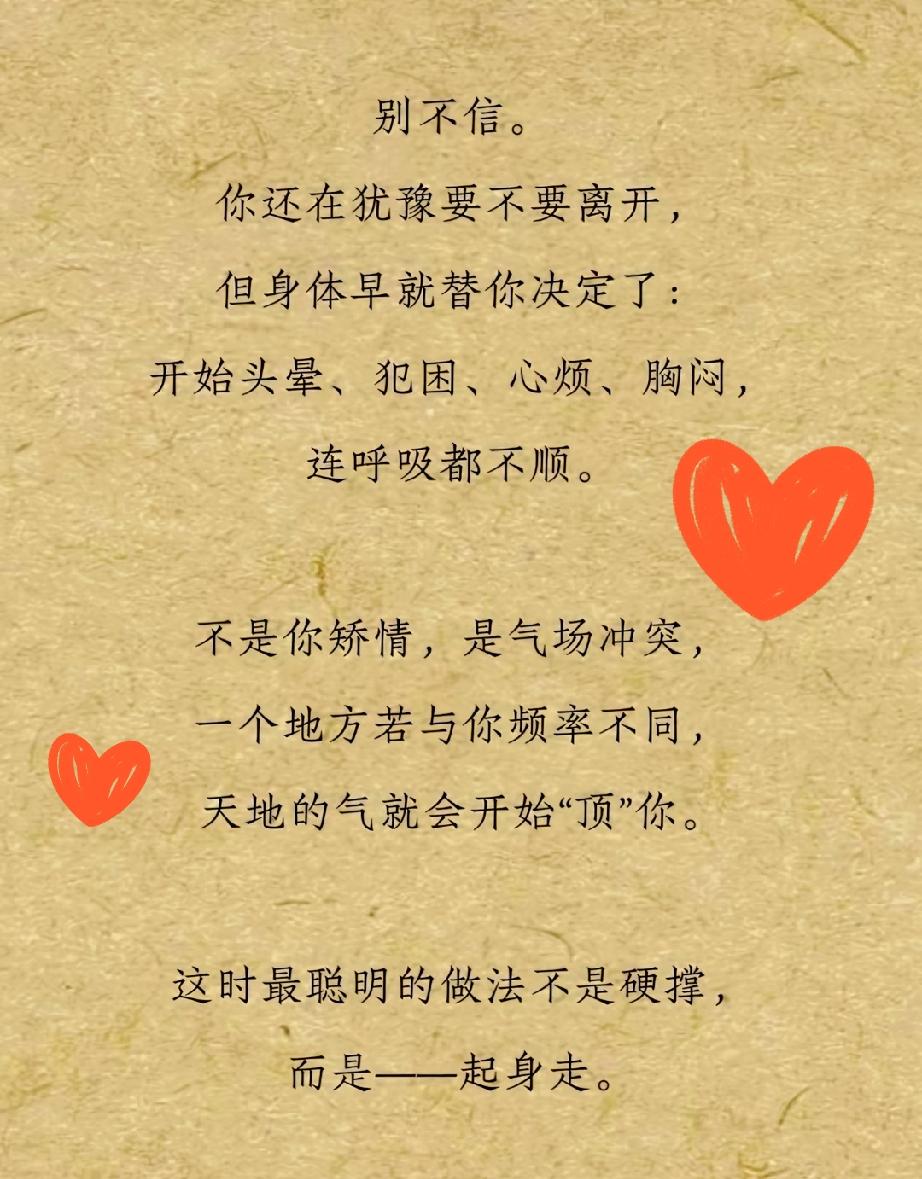 别不信。
你还在犹豫要不要离开，
但身体早就替你决定了：
开始头晕、犯困、心烦、胸闷，
连呼吸都不顺。
不是你矫情，是气场冲突，
一个地方若与你频率不同，
天地的气就会开始“顶”你。
这时最聪明的做法不是硬撑，
而是——起身走。